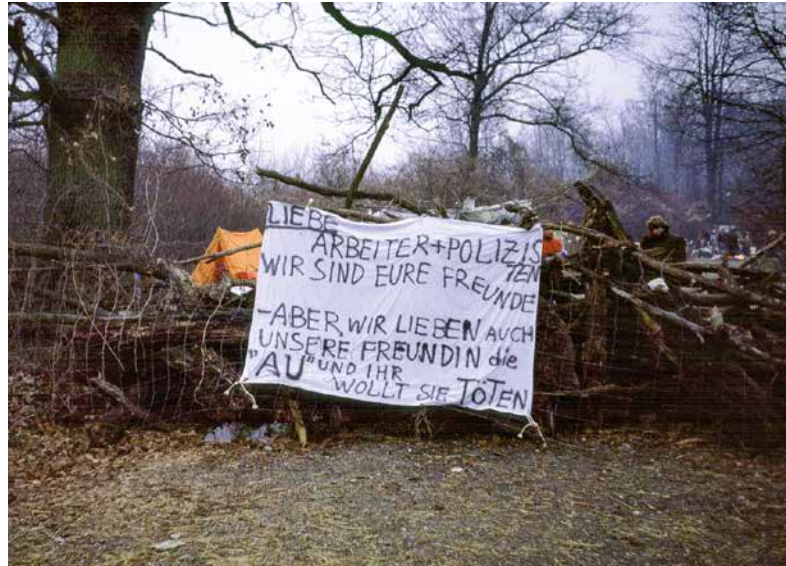 LIEBE
ARBEITER+POLIZIS
TEN
WIR SIND EURE FREUNDE
-ABER WIR LIEBEN AUCH
UNSERE FREUNDIN die
"AU" UND IHR
WOLLT SIE TÖTEN